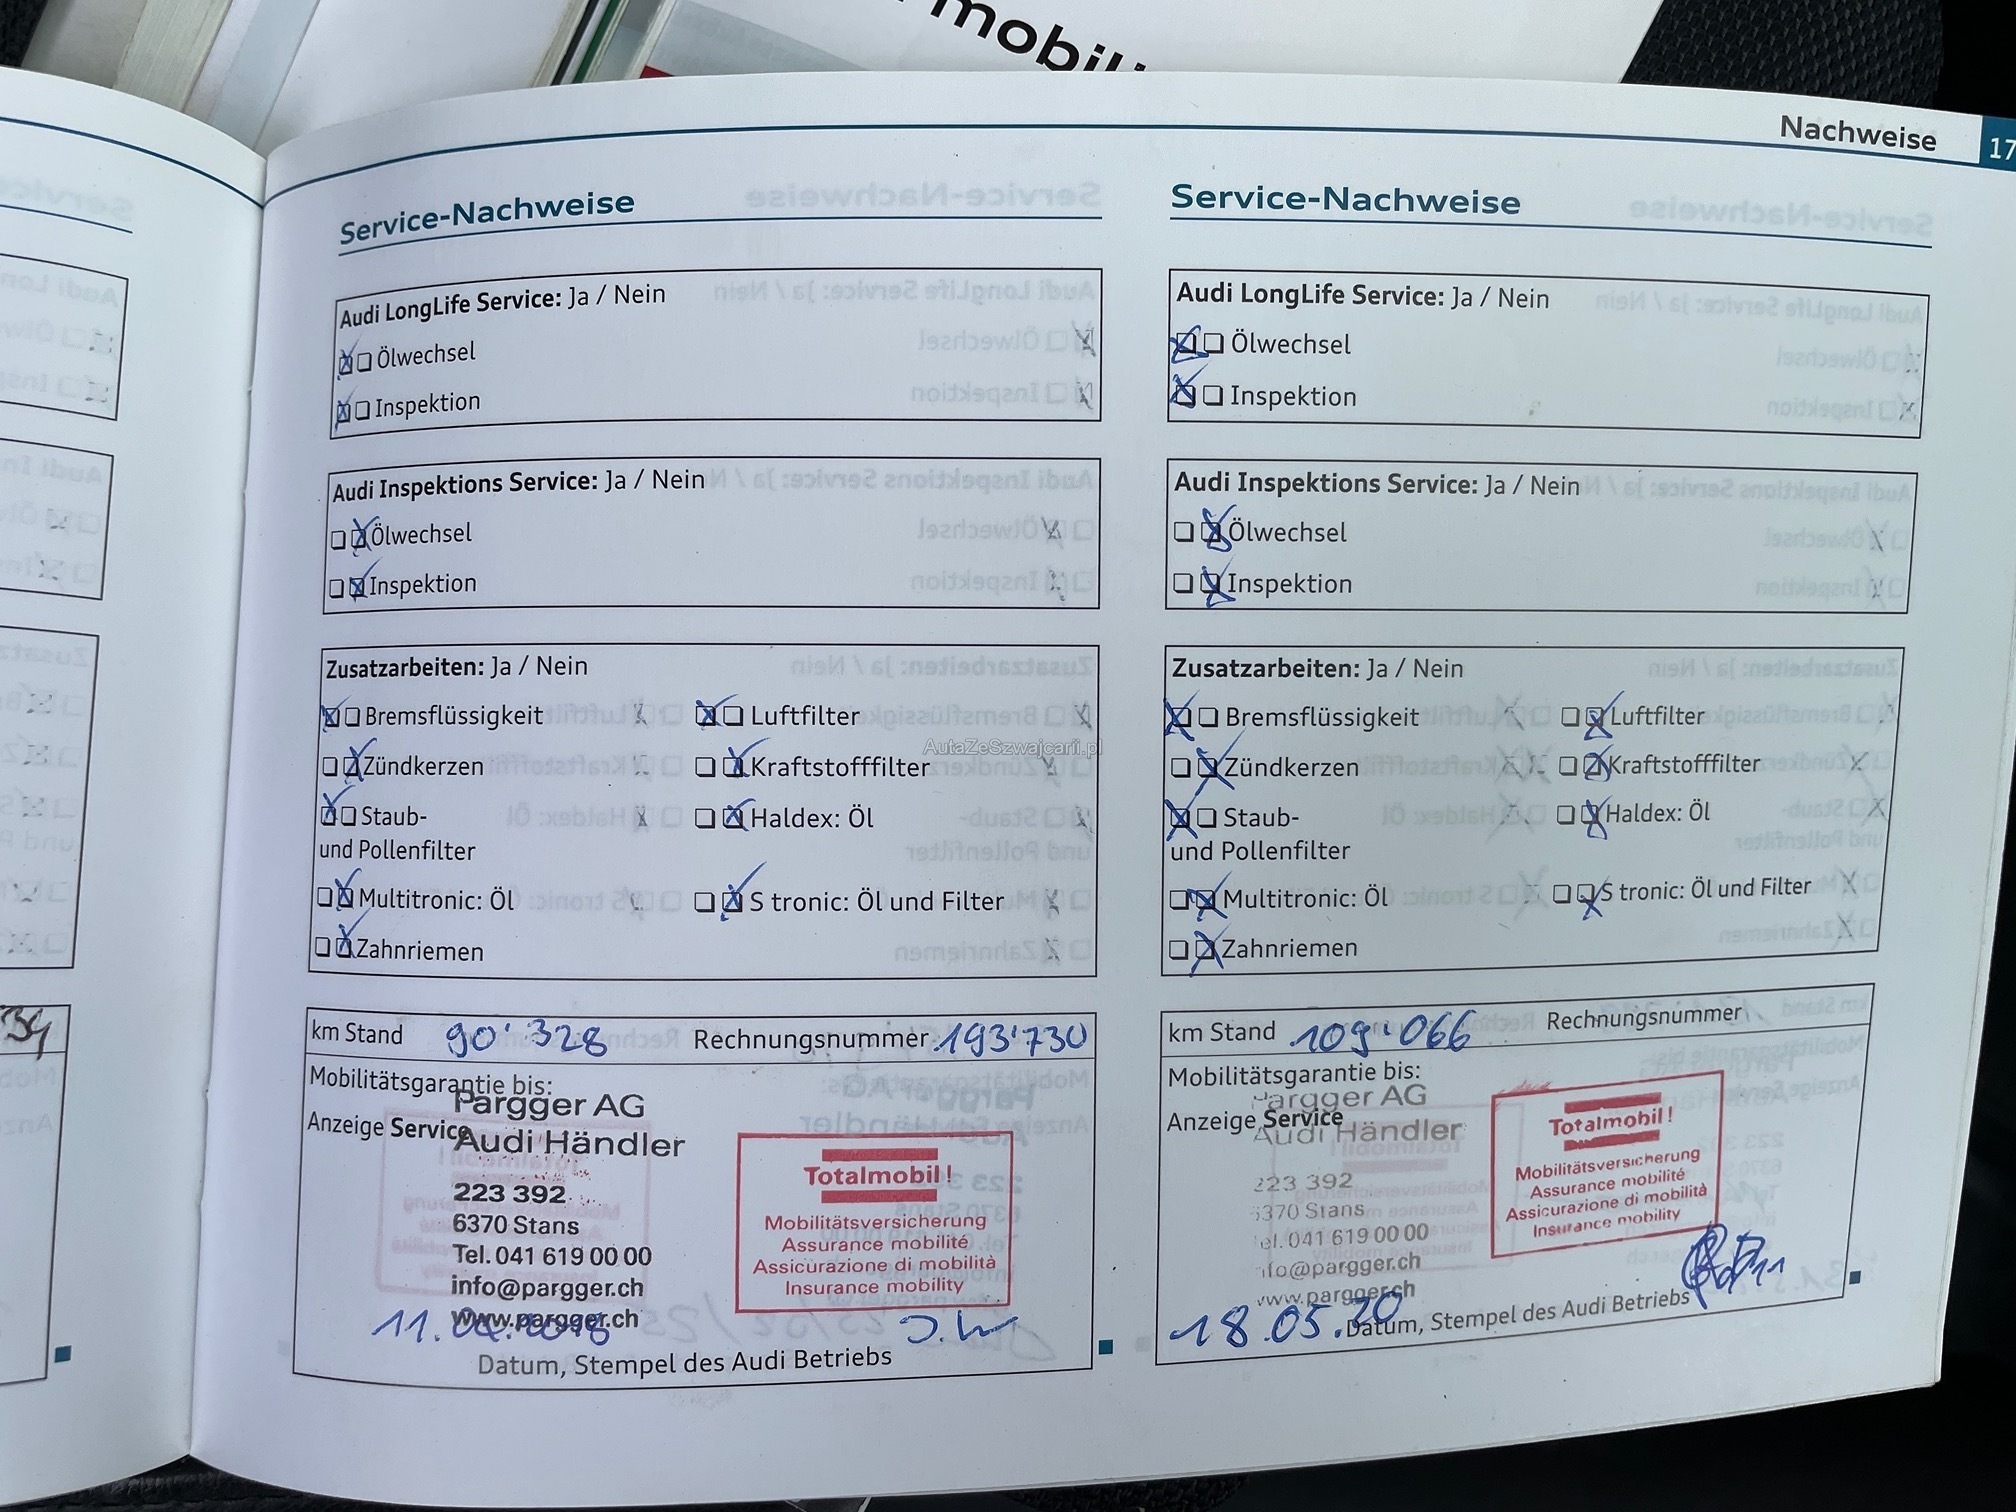 mobili
Nachweise
17
Service-Nachweise
Audi LongLife Service: Ja / Nein
Ölwechsel
Inspektion
Audi Inspektions Service: Ja / Nein
Ölwechsel
Inspektion
Zusatzarbeiten: Ja / Nein
Bremsflüssigkeit Luftfilter
Zündkerzen Kraftstofffilter
Staub- Haldex: Öl
und Pollenfilter
Multitronic: Öl S tronic: Öl und Filter
Zahnriemen
km Stand 90'328 Rechnungsnummer 193'730
Mobilitätsgarantie bis:
Pargger AG
Anzeige Service
Audi Händler
223 392
6370 Stans
Tel. 041 619 00 00
info@pargger.ch
www.pargger.ch
Totalmobil!
Mobilitätsversicherung
Assurance mobilité
Assicurazione di mobilità
Insurance mobility
Datum, Stempel des Audi Betriebs
Service-Nachweise
Audi LongLife Service: Ja / Nein
Ölwechsel
Inspektion
Audi Inspektions Service: Ja / Nein
Ölwechsel
Inspektion
Zusatzarbeiten: Ja / Nein
Bremsflüssigkeit Luftfilter
Zündkerzen Kraftstofffilter
Staub- Haldex: Öl
und Pollenfilter
Multitronic: Öl S tronic: Öl und Filter
Zahnriemen
km Stand 109'066 Rechnungsnummer
Mobilitätsgarantie bis:
Pargger AG
Anzeige Service
Audi Händler
223 392
6370 Stans
Tel. 041 619 00 00
info@pargger.ch
www.pargger.ch
Totalmobil!
Mobilitätsversicherung
Assurance mobilité
Assicurazione di mobilità
Insurance mobility
18.05.20
Datum, Stempel des Audi Betriebs
AutaZeSzwajcarii.pl